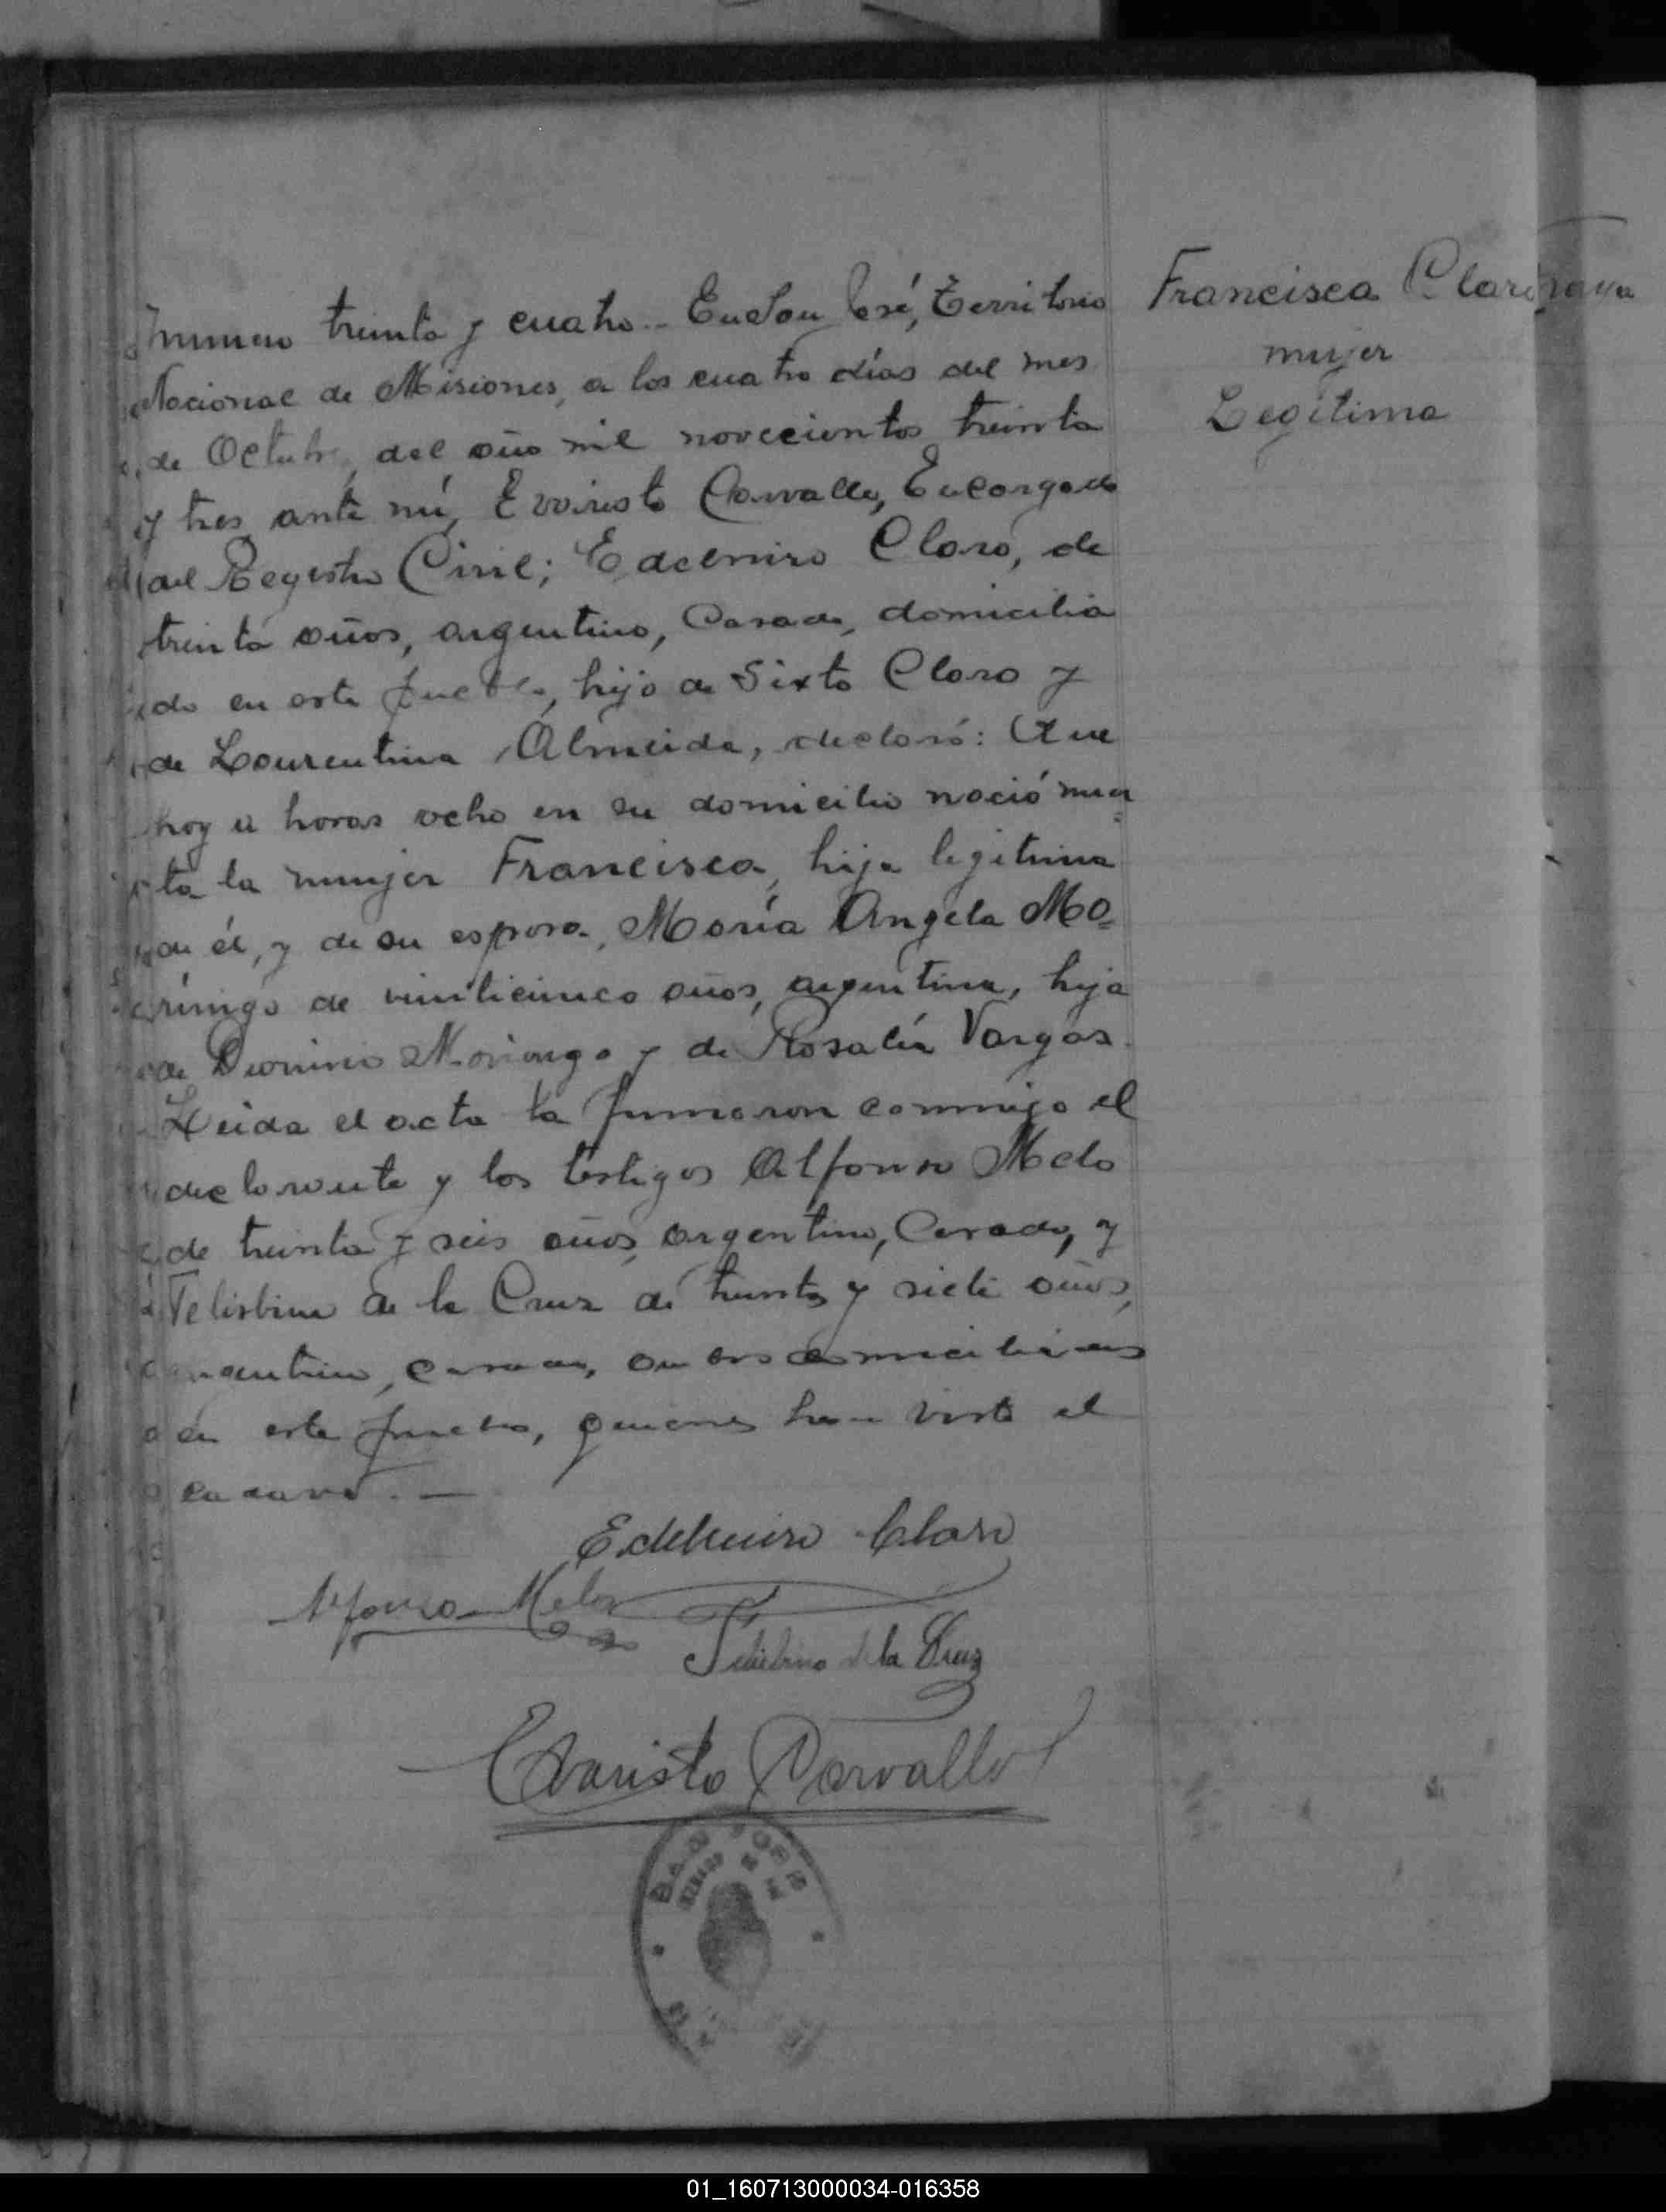 Numero treinta y cuatro.- En San José, Territorio
Nacional de Misiones, a los cuatro días del mes
de Octubre, del año mil novecientos treinta
y tres, ante mí, Evaristo Carvallo, Encargado
del Registro Civil; Edelmiro Claro, de
treinta años, argentino, Casado, domicilia
do en este pueblo, hijo de Sixto Claro y
de Laurentina Almeida, declaró: Que
hoy a horas ocho en su domicilio nació muer=
ta la mujer Francisca, hija legitima
de él, y de su esposa, María Angela Mo=
ringo de veinticinco años, argentina, hija
de Dionicio Moringo y de Rosalía Vargas.
Leida el acta la firmaron conmigo el
declarante y los testigos Alfonso Melo
de treinta y seis años, argentino, Casado, y
Telisbino de la Cruz de treinta y siete años,
argentino, casado, ambos domiciliados
en este pueblo, quienes han visto el
cadaver. —
Francisca Claro
mujer
Legítima
Edelmiro Claro
Alfonso Melo
Telisbino de la Cruz
Evaristo Carvallo
01_160713000034-016358